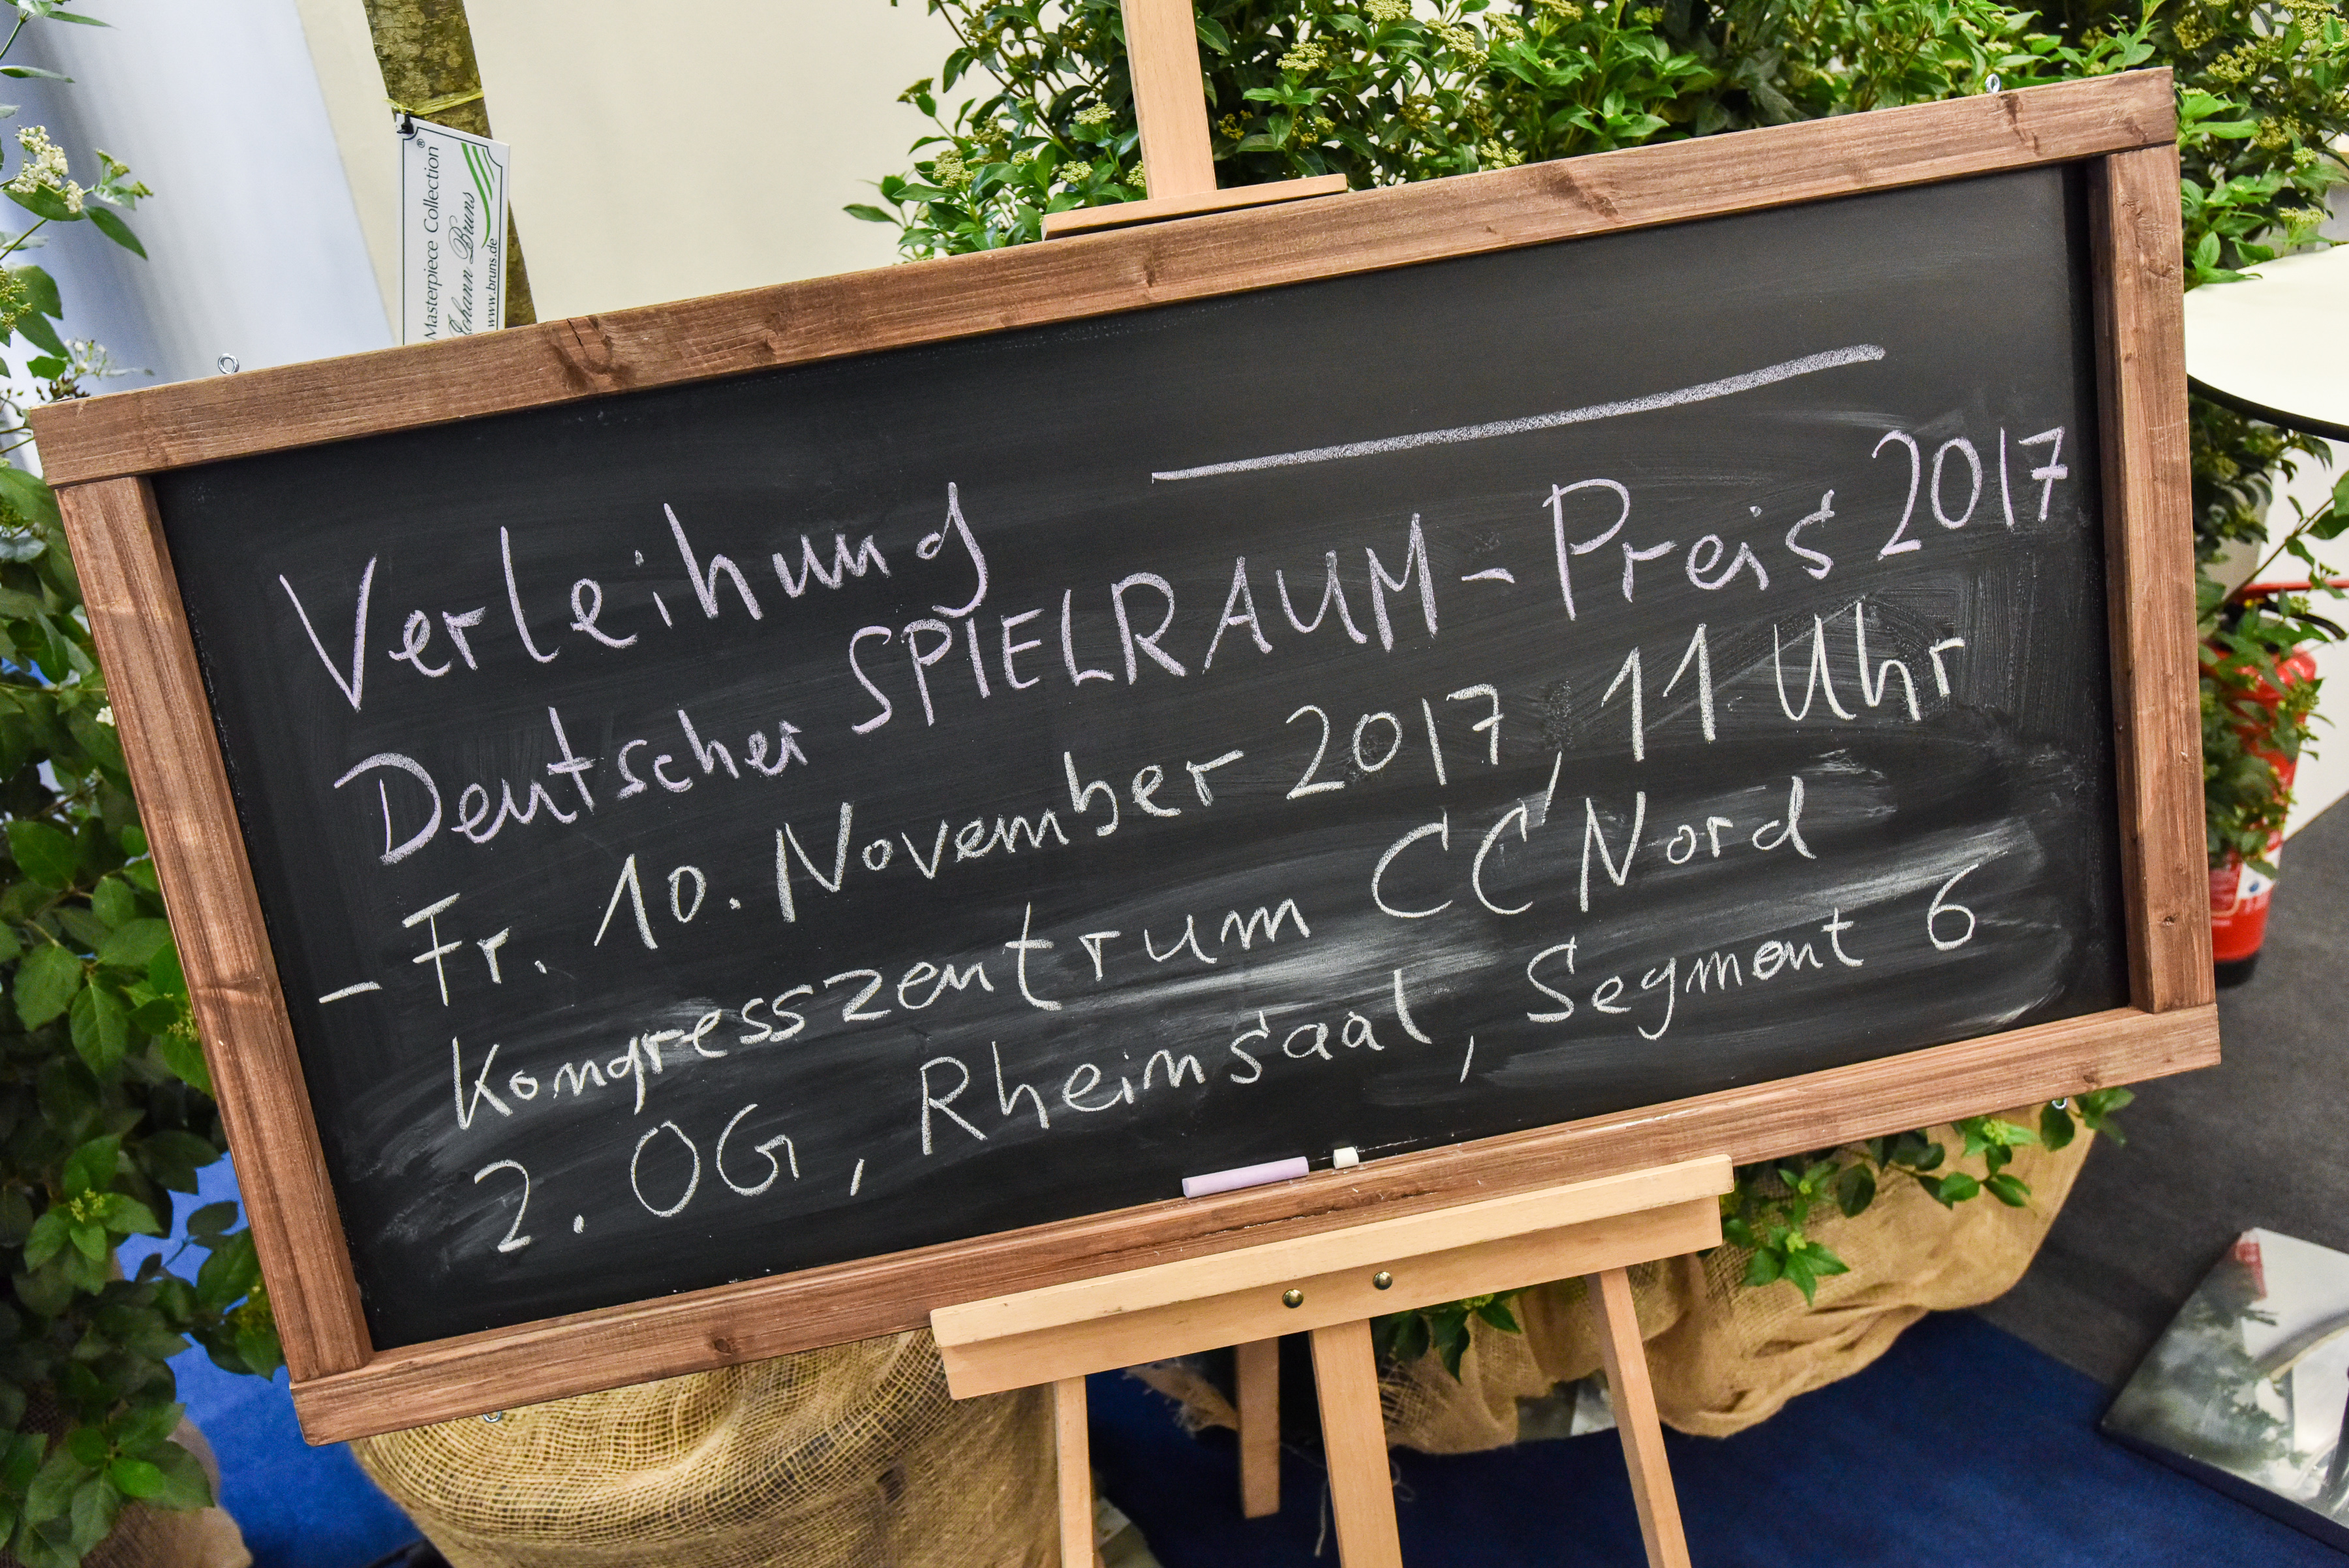 Masterpiece Collection ®
Johann Bruns
www.bruns.de
Verleihung
Deutscher SPIELRAUM-Preis 2017
- Fr. 10. November 2017, 11 Uhr
Kongresszentrum CC Nord
2. OG, Rheinsaal, Segment 6